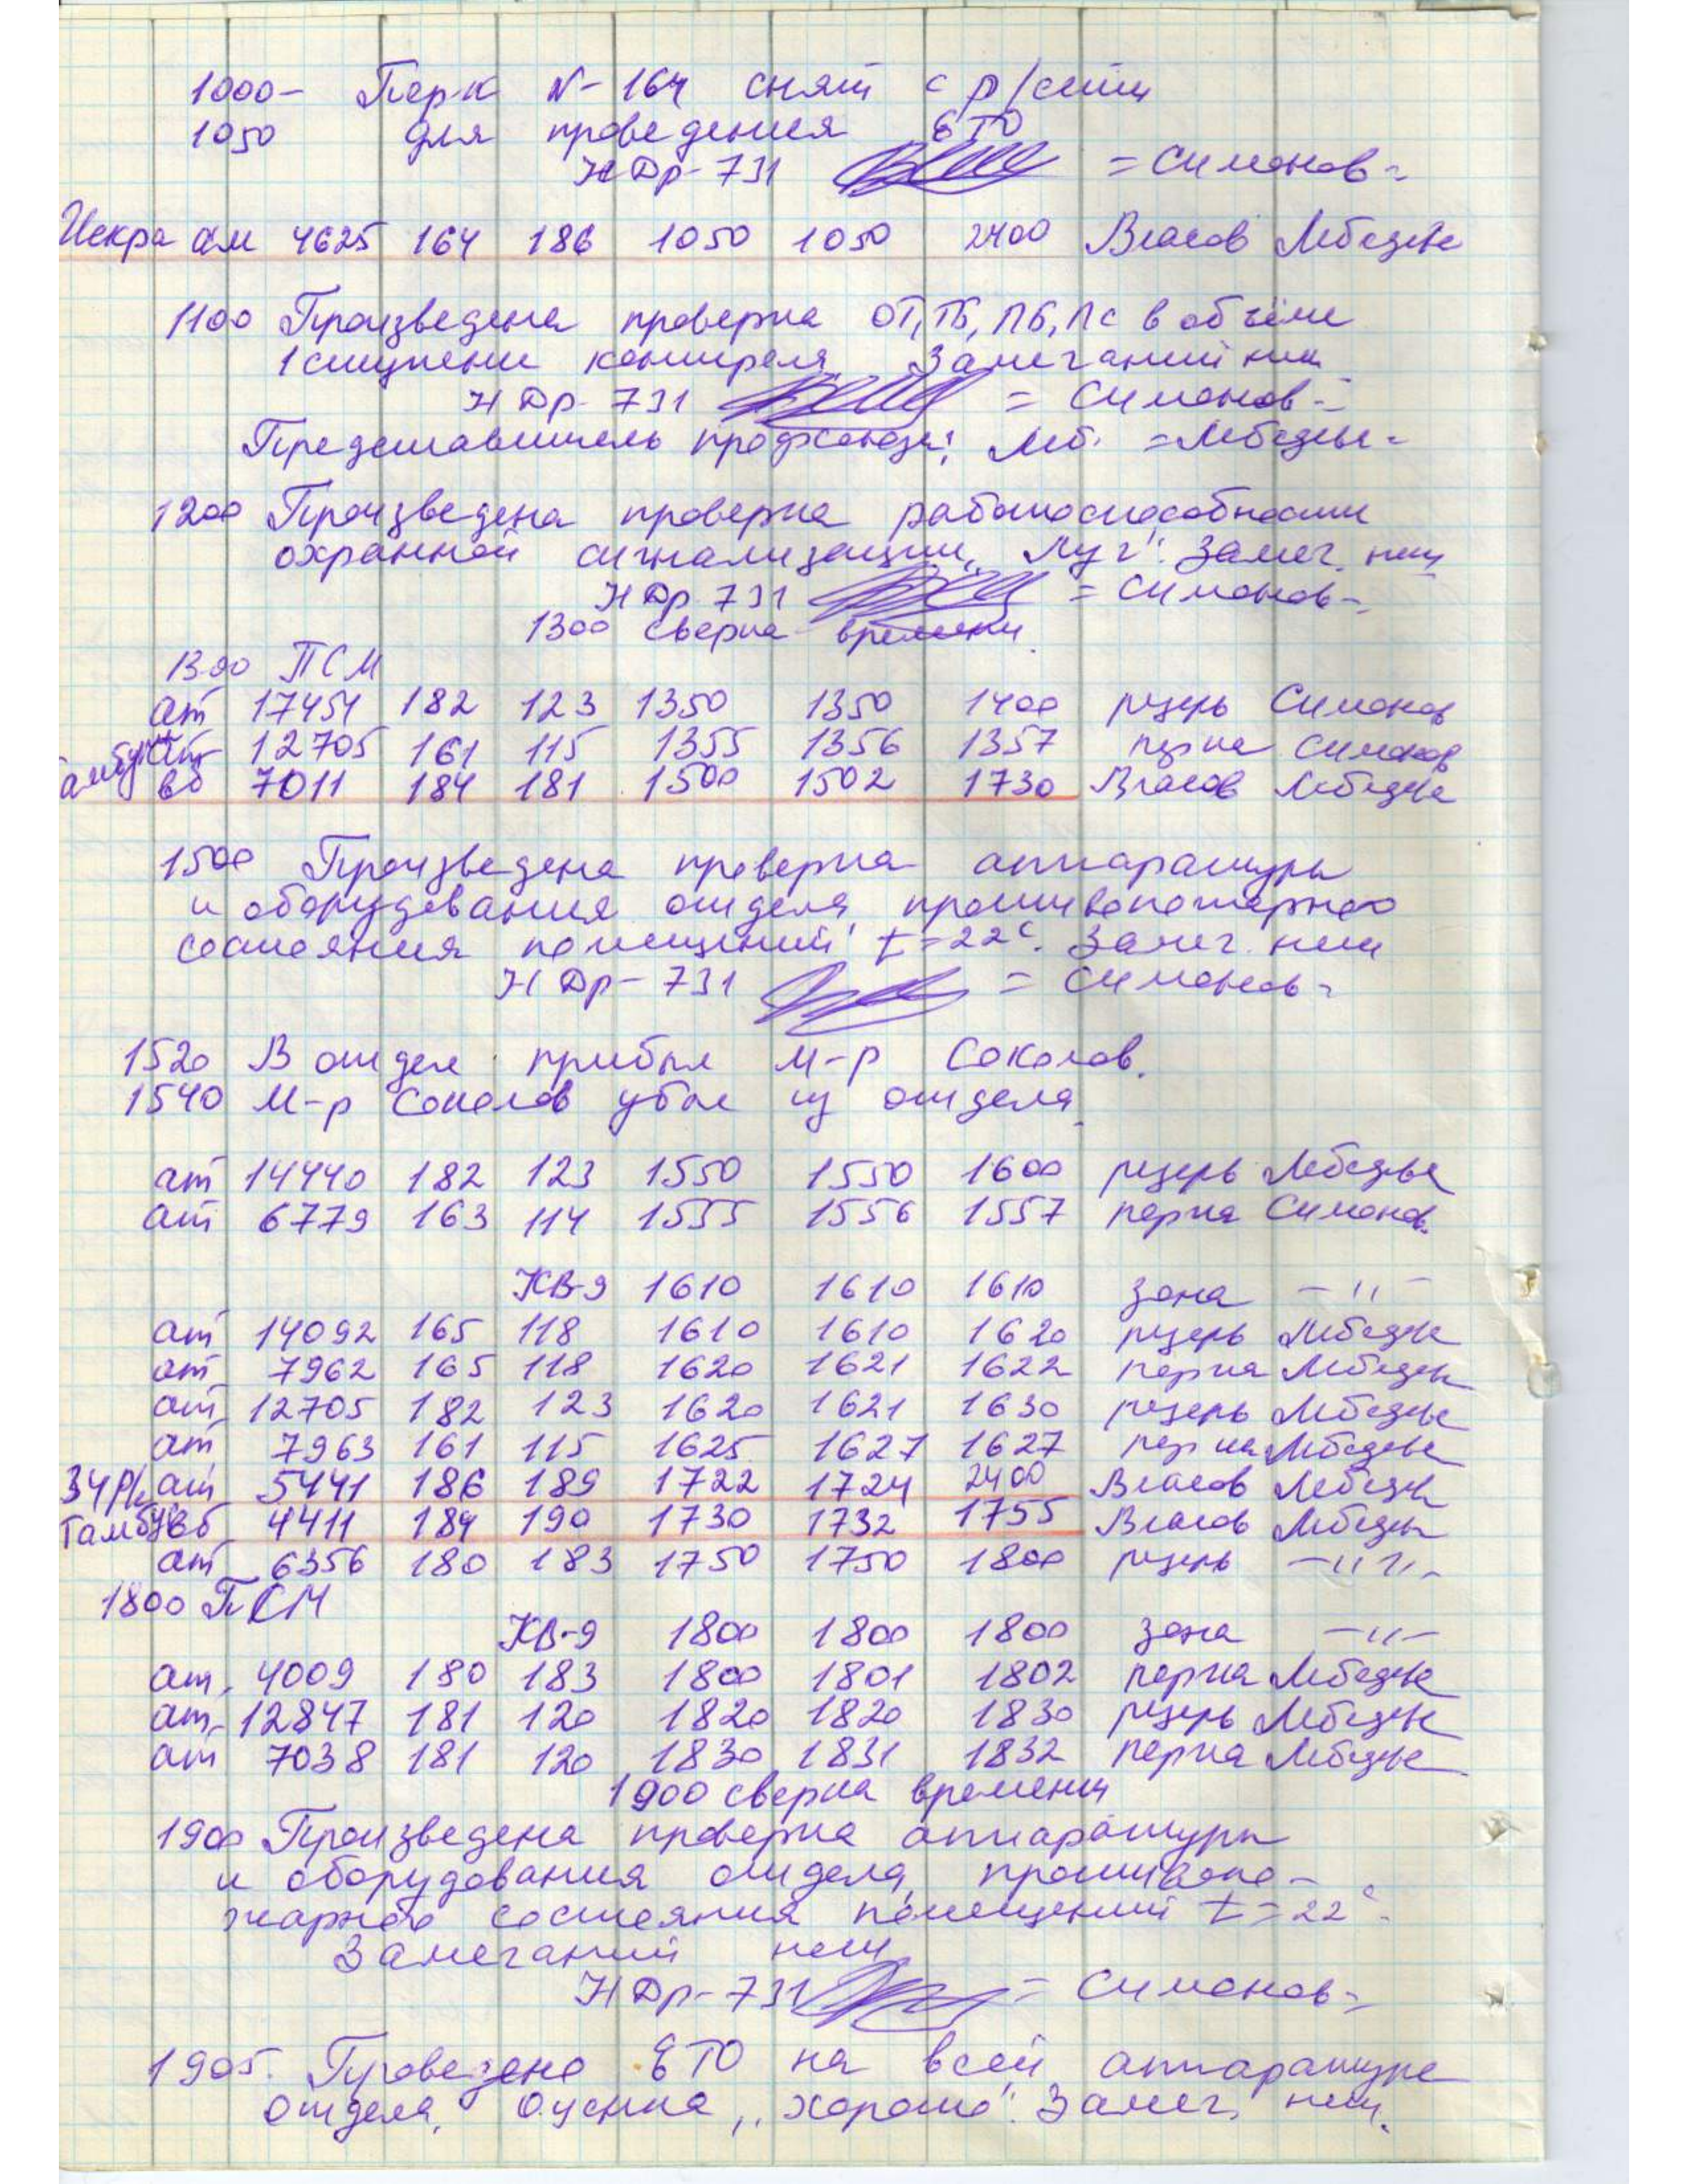 1000- Пер-к N-164 снят с р/сети
1050 для проведения ЕТО
НДр-731 = Симонов-
Искра ам 4625 164 186 1050 1050 2400 Власов Лебедев
1100 Произведена проверка ОТ, ТБ, ПБ, ПС в объёме
1 ступени контроля. Замечаний нет
НДр-731 = Симонов-
Представитель профсоюза: Леб. =Лебедев-
1200 Произведена проверка работоспособности
охранной сигнализации „Луч". Замеч. нет
НДр 731 = Симонов-
1300 сверка времени
1300 ПСМ
ат 17454 182 123 1350 1350 1400 резерв Симонов
ат 12705 161 115 1355 1356 1357 перка Симонов
Тамбук вб 7011 184 181 1500 1502 1730 Власов Лебедев
1500 Произведена проверка аппаратуры
и оборудования отдела, противопожарного
состояния помещений t=22°. Замеч. нет
НДр-731 = Симонов-
1520 В отдел прибыл м-р Соколов.
1540 М-р Соколов убыл из отдела.
ат 14440 182 123 1550 1550 1600 резерв Лебедев
ат 6779 163 114 1555 1556 1557 перка Симонов.
КВ-9 1610 1610 1610 зона -"-
ат 14092 165 118 1610 1610 1620 резерв Лебедев
ат 7962 165 118 1620 1621 1622 перка Лебедев
ат 12705 182 123 1620 1621 1630 резерв Лебедев
ат 7963 161 115 1625 1627 1627 перка Лебедев
ат 5441 186 189 1722 1724 2400 Власов Лебедев
Тамбук вб 4411 184 190 1730 1732 1755 Власов Лебедев
ат 6356 180 183 1750 1750 1800 резерв -"-
1800 ПСМ
КВ-9 1800 1800 1800 зона -"-
ат 4009 180 183 1800 1801 1802 перка Лебедев
ат 12847 181 120 1820 1820 1830 резерв Лебедев
ат 7038 181 120 1830 1831 1832 перка Лебедев
1900 сверка времени
1900 Произведена проверка аппаратуры
и оборудования отдела, противопо-
жарного состояния помещений t=22°.
Замечаний нет
НДр-731 = Симонов-
1905. Проведено ЕТО на всей аппаратуре
отдела. Оценка „хорошо". Замеч. нет.